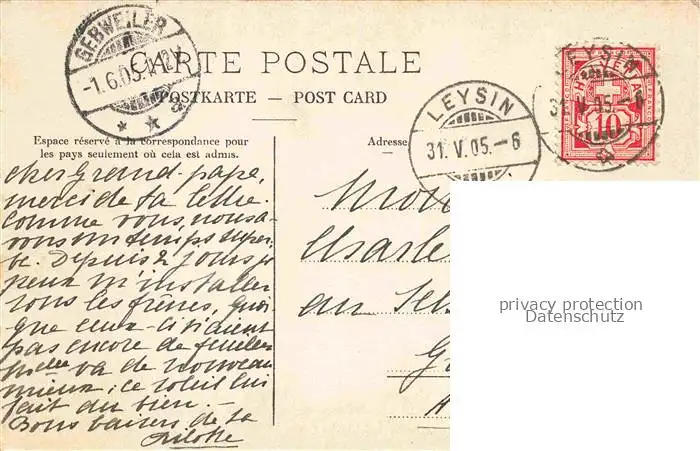 GEBWEILER
-1.6.05.
CARTE POSTALE
POSTKARTE — POST CARD
LEYSIN
31. V. 05. — 6
LEYSIN
31. V. 05. — 6
HELVETIA
10
Espace réservé à la correspondance pour
les pays seulement où cela est admis.
Adresse
cher Grand-papa,
merci de ta lettre.
Comme vous, nous a-
vons un temps super-
be. Depuis 2 jours je
peux m'installer
sous les frênes, quoi-
que ceux-ci n'aient
pas encore de feuilles
va de nouveau
mieux; ce soleil lui
fait du bien. —
Bons baisers de ta
Charles
au
privacy protection
Datenschutz